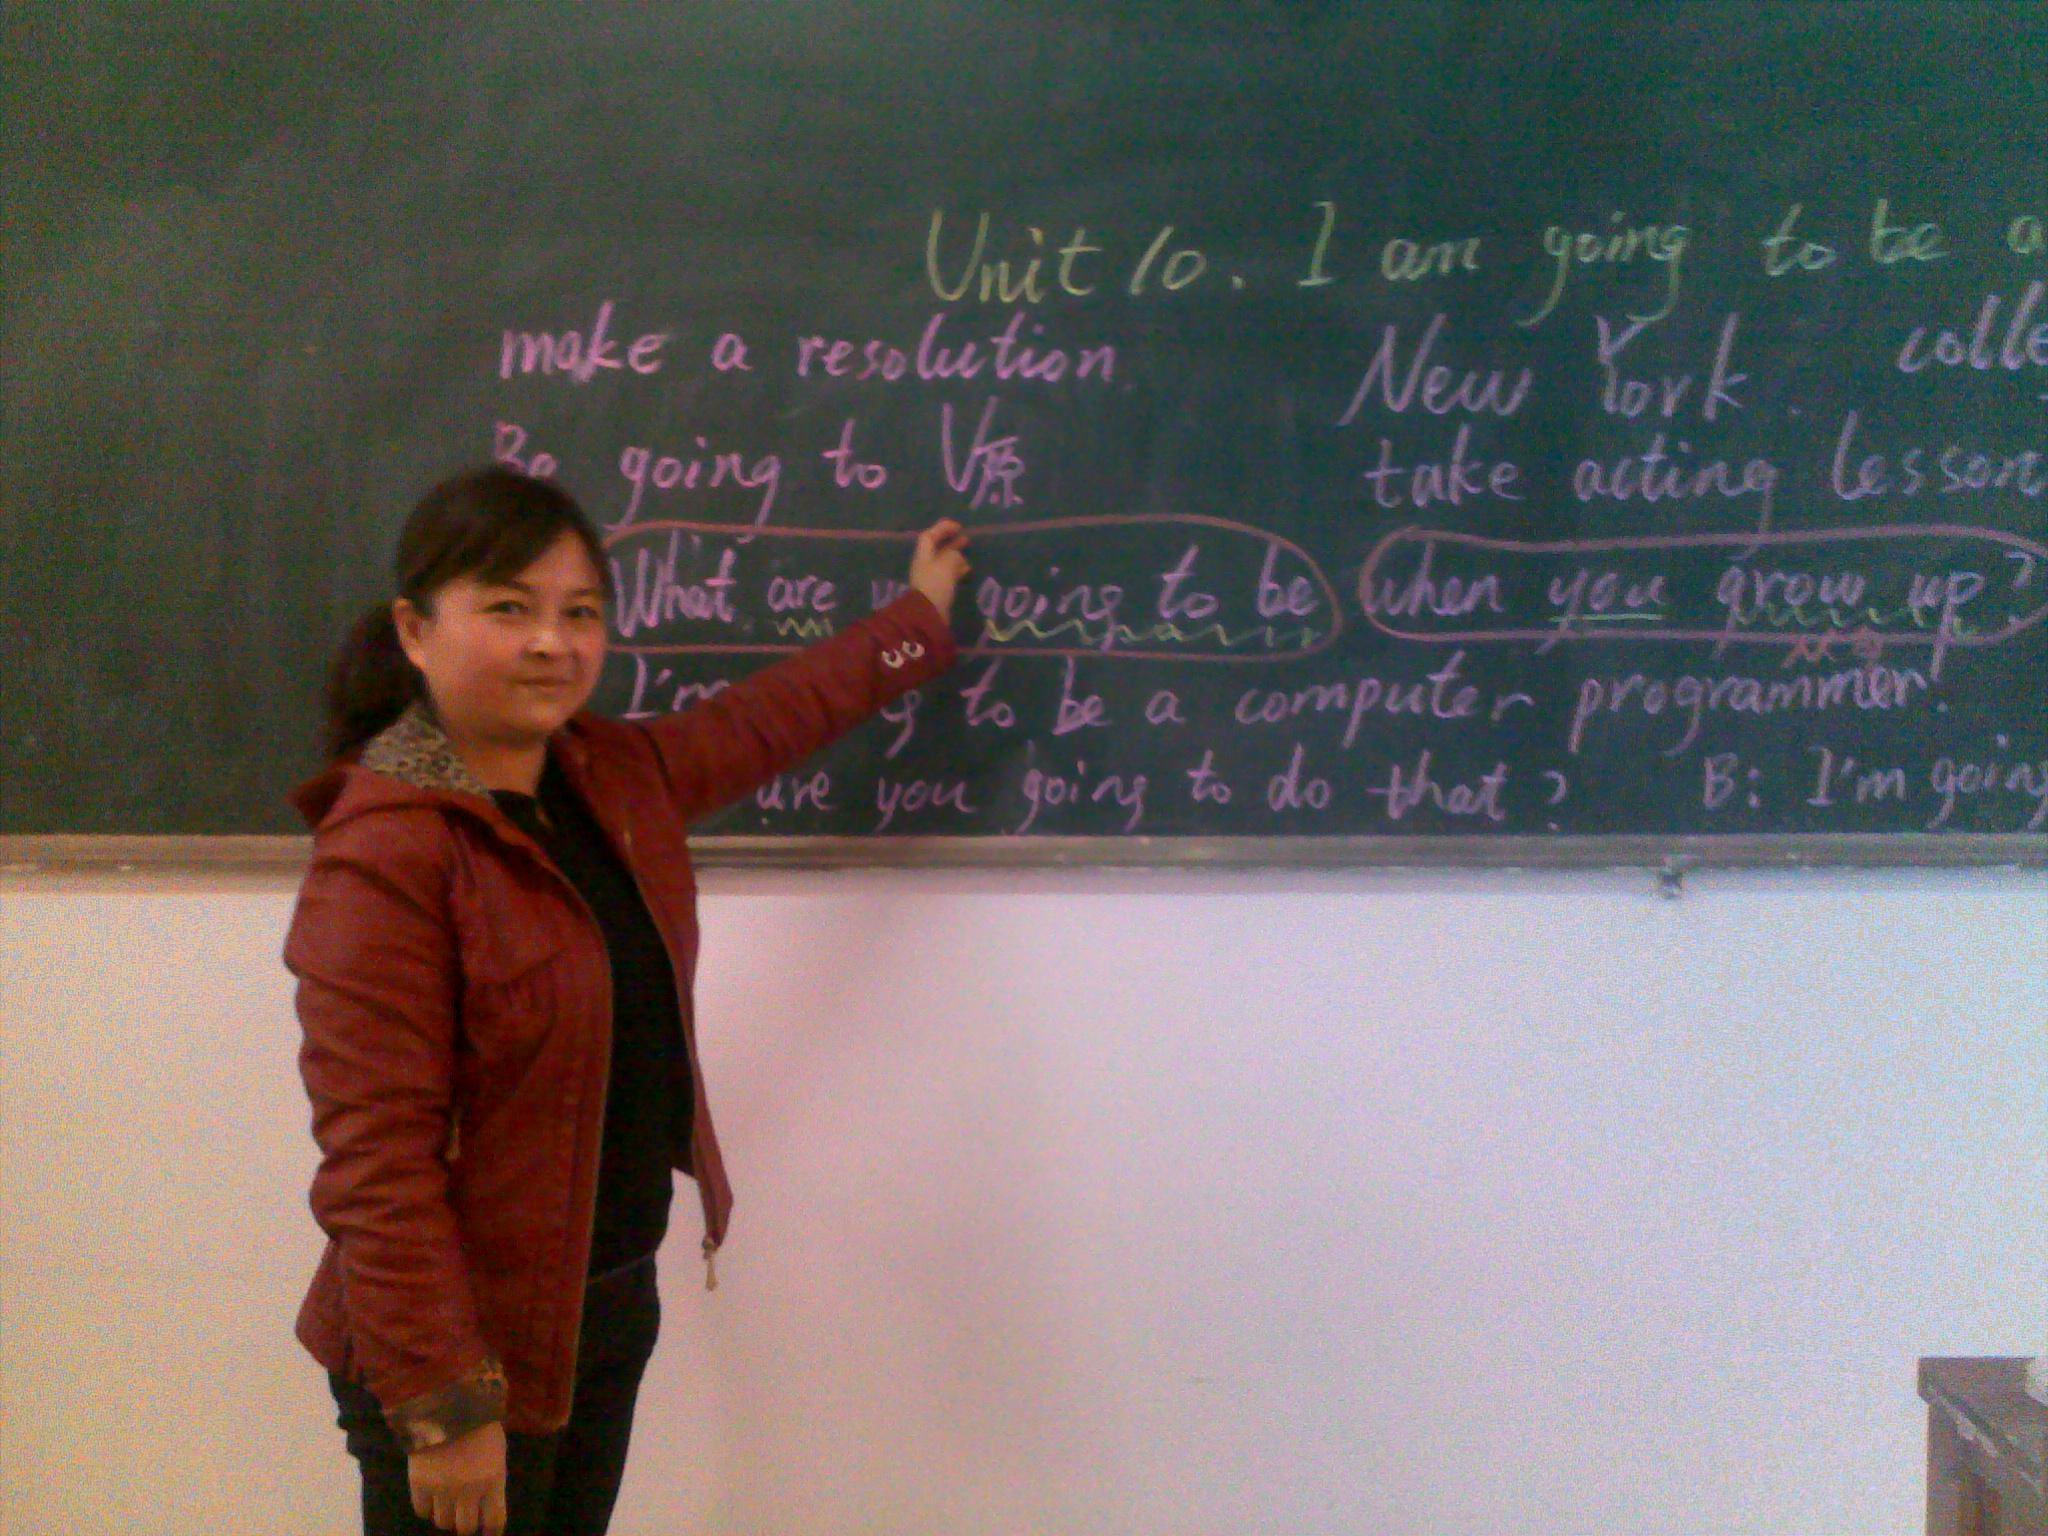 Unit 10. I am going to be a
make a resolution. New York. colle
Be going to V原 take acting lesson
What are you going to be when you grow up?
I'm to be a computer programmer.
are you going to do that? B: I'm going